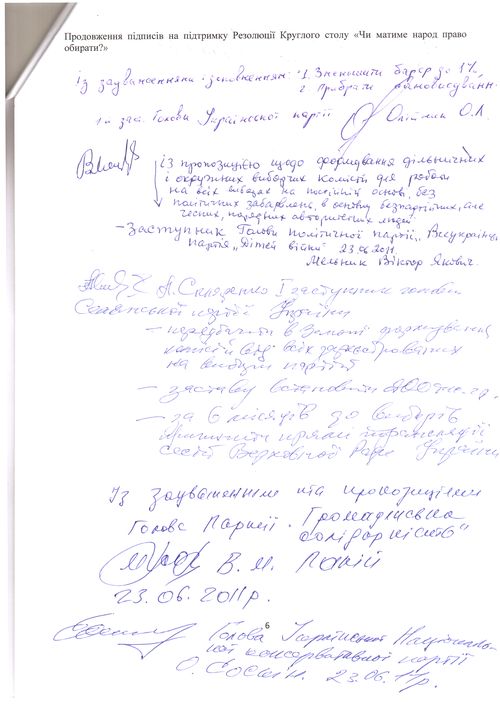 Продовження підписів на підтримку Резолюції Круглого столу «Чи матиме народ право
обирати?»
із зауваженнями і доповненням: 1. Зменшити бар'єр до 1%
2. Прибрати
1й заст. Голови Української партії Олійник О.Л.
із пропозицією щодо формування дільничних
і окружних виборчих комісій для роботи
на всіх виборах на постійній основі, без
політичних забарвлень, в основу безпартійних, але
чесних, порядних авторитетних людей
– Заступник Голови політичної партії „Всеукраїнська
партія „Дітей війни" 23.06.2011.
Мельник Віктор Якович.
І заступник голови
Селянської партії України
– передбачити в Законі формування
комісій від всіх зареєстрованих
на виборах партій
– заставу встановити
– за 6 місяців до виборів
прямі трансляції
сесії Верховної Ради України
Із зауваженнями та пропозиціями
Голова Партії „Громадянська
солідарність"
В. М.
23.06.2011р.
6
Голова Української Національ-
ної консервативної партії
О. Соскін. 23.06.11р.